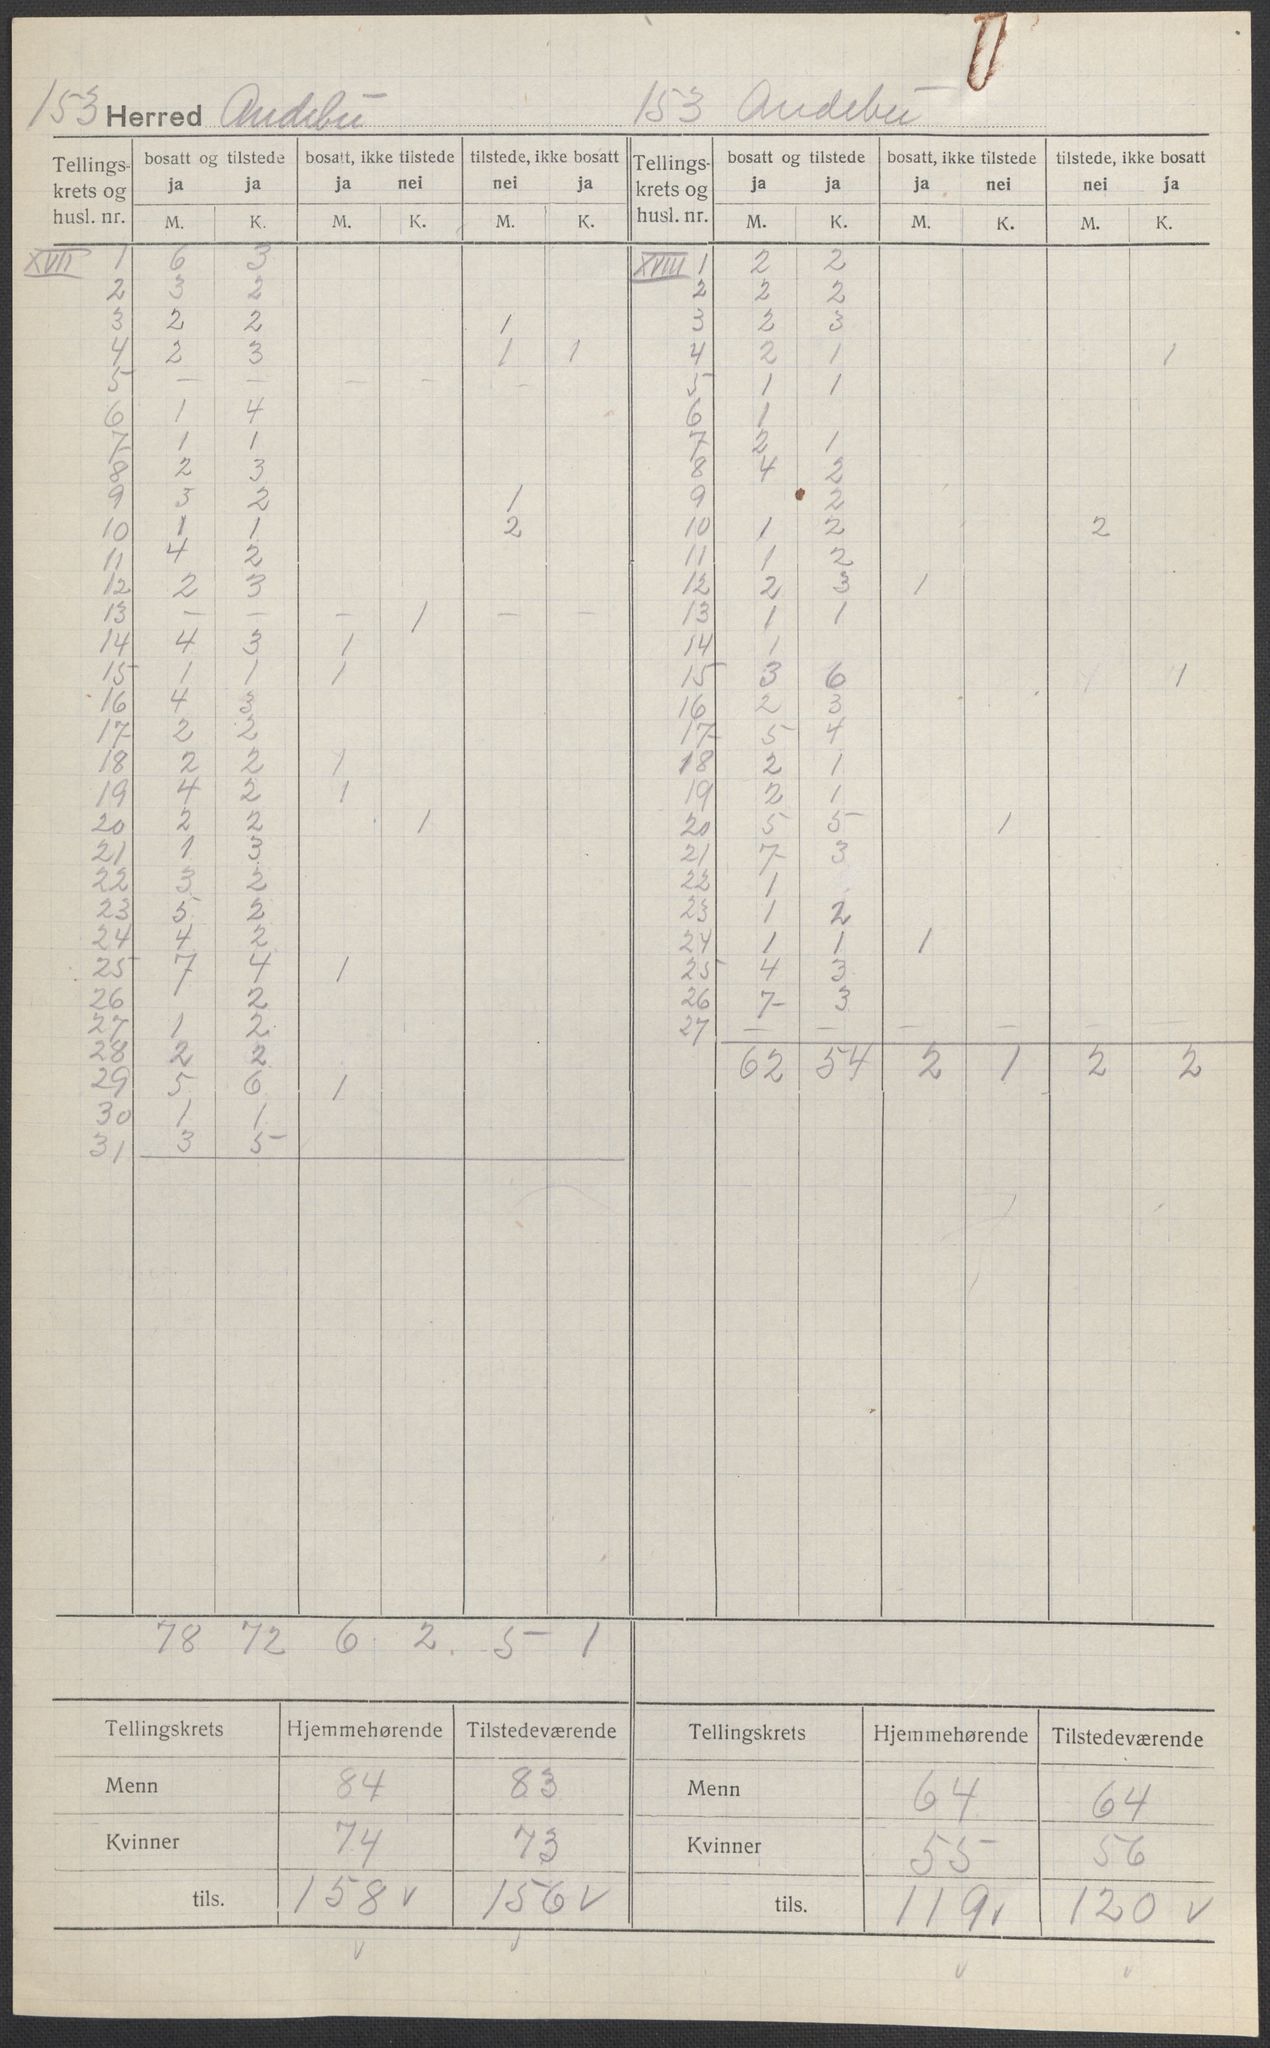 153 Herred Andebu
Tellings-krets og husl. nr. | bosatt og tilstede ja ja | bosatt, ikke tilstede ja nei | tilstede, ikke bosatt nei ja
M. K. M. K. M. K.
XVII 1 6 3
2 3 2
3 2 2 1
4 2 3 1 1
5 — — — — —
6 1 4
7 1 1
8 2 3
9 3 2 1
10 1 1 2
11 4 2
12 2 3
13 — — — 1 — —
14 4 3 1
15 1 1 1
16 4 3
17 2 2
18 2 2 1
19 4 2 1
20 2 2 1
21 1 3
22 3 2
23 5 2
24 4 2
25 7 4 1
26 2
27 1 2
28 2 2
29 5 6 1
30 1 1
31 3 5
78 72 6 2 5 1
Tellingskrets Hjemmehørende Tilstedeværende
Menn 84 83
Kvinner 74 73
tils. 158 v 156 v
v v
153 Andebu
Tellings-krets og husl. nr. | bosatt og tilstede ja ja | bosatt, ikke tilstede ja nei | tilstede, ikke bosatt nei ja
M. K. M. K. M. K.
XVIII 1 2 2
2 2 2
3 2 3
4 2 1 1
5 1 1
6 1
7 2 1
8 4 2
9 2
10 1 2 2
11 1 2
12 2 3 1
13 1 1
14 1
15 3 6 1
16 2 3
17 5 4
18 2 1
19 2 1
20 5 5 1
21 7 3
22 1
23 1 2
24 1 1 1
25 4 3
26 7 3
27 — — — — — —
62 54 2 1 2 2
Tellingskrets Hjemmehørende Tilstedeværende
Menn 64 64
Kvinner 55 56
tils. 119 v 120 v
v v